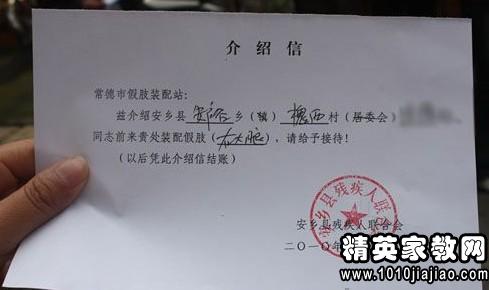 介绍信
常德市假肢装配站:
兹介绍安乡县 安康 乡(镇) 槐西 村(居委会)
同志前来贵处装配假肢(右大腿),请给予接待!
(以后凭此介绍信结账)
安乡县残疾人联合会
安乡县残疾人联合会
二〇一〇年
精英家教网
www.1010jiajiao.com